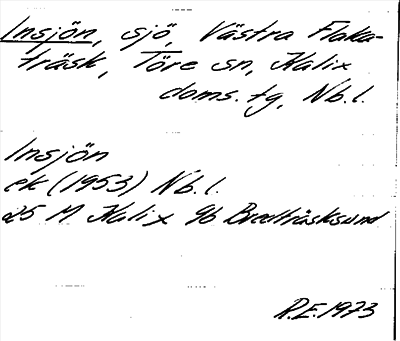 Insjön, sjö, Västra Flaka-
träsk, Töre sn, Kalix
doms. tg, Nb.l.
Insjön
ek (1953) Nb.l.
25 M Kalix 9b Bredträsksund
R.E. 1973